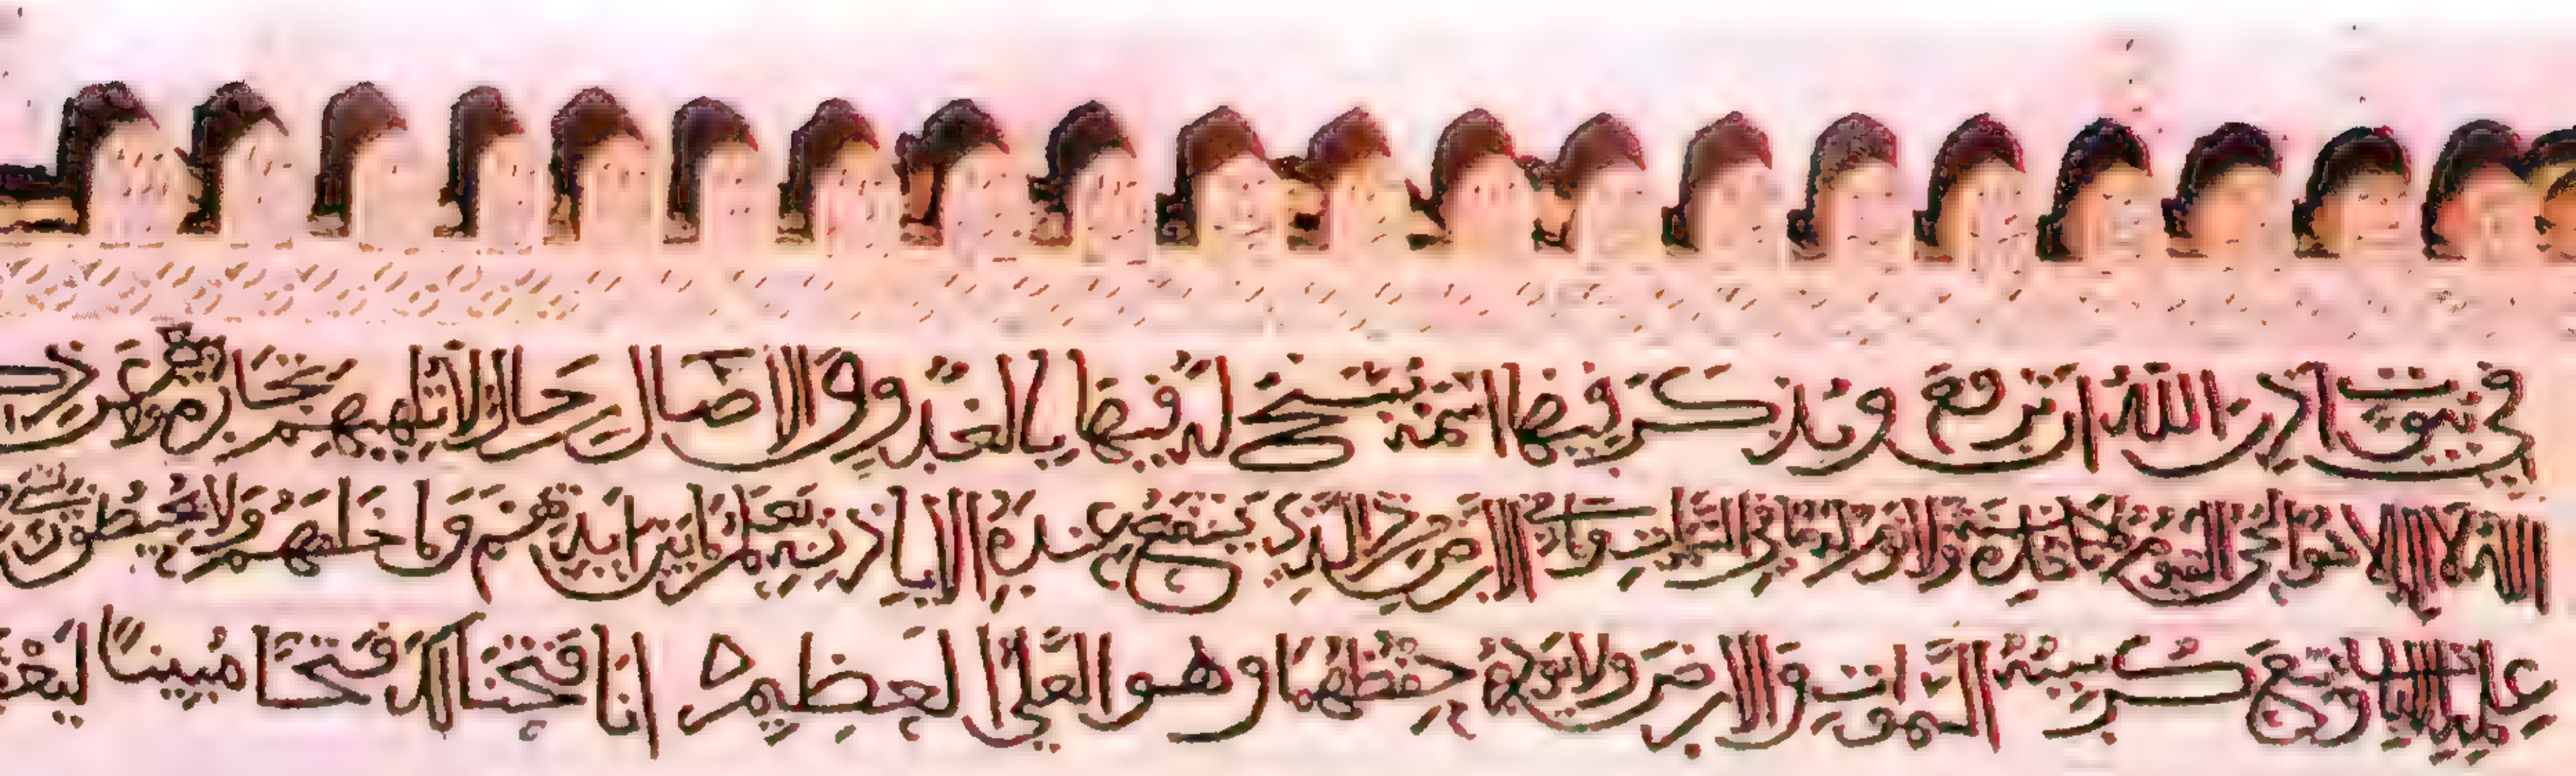 في بيوت اذن الله ان ترفع ويذكر فيها اسمه يسبح له فيها بالغدو والاصال رجال لا تلهيهم تجارة ولا بيع عن ذكر
الله لا اله الا هو الحي القيوم لا تاخذه سنة ولا نوم له ما في السموات وما في الارض من ذا الذي يشفع عنده الا باذنه يعلم ما بين ايديهم وما خلفهم ولا يحيطون بشيء
علمه الا بما شا وسع كرسيه السموات والارض ولا يؤده حفظهما وهو العلي العظيم انا فتحنا لك فتحا مبينا ليغفر